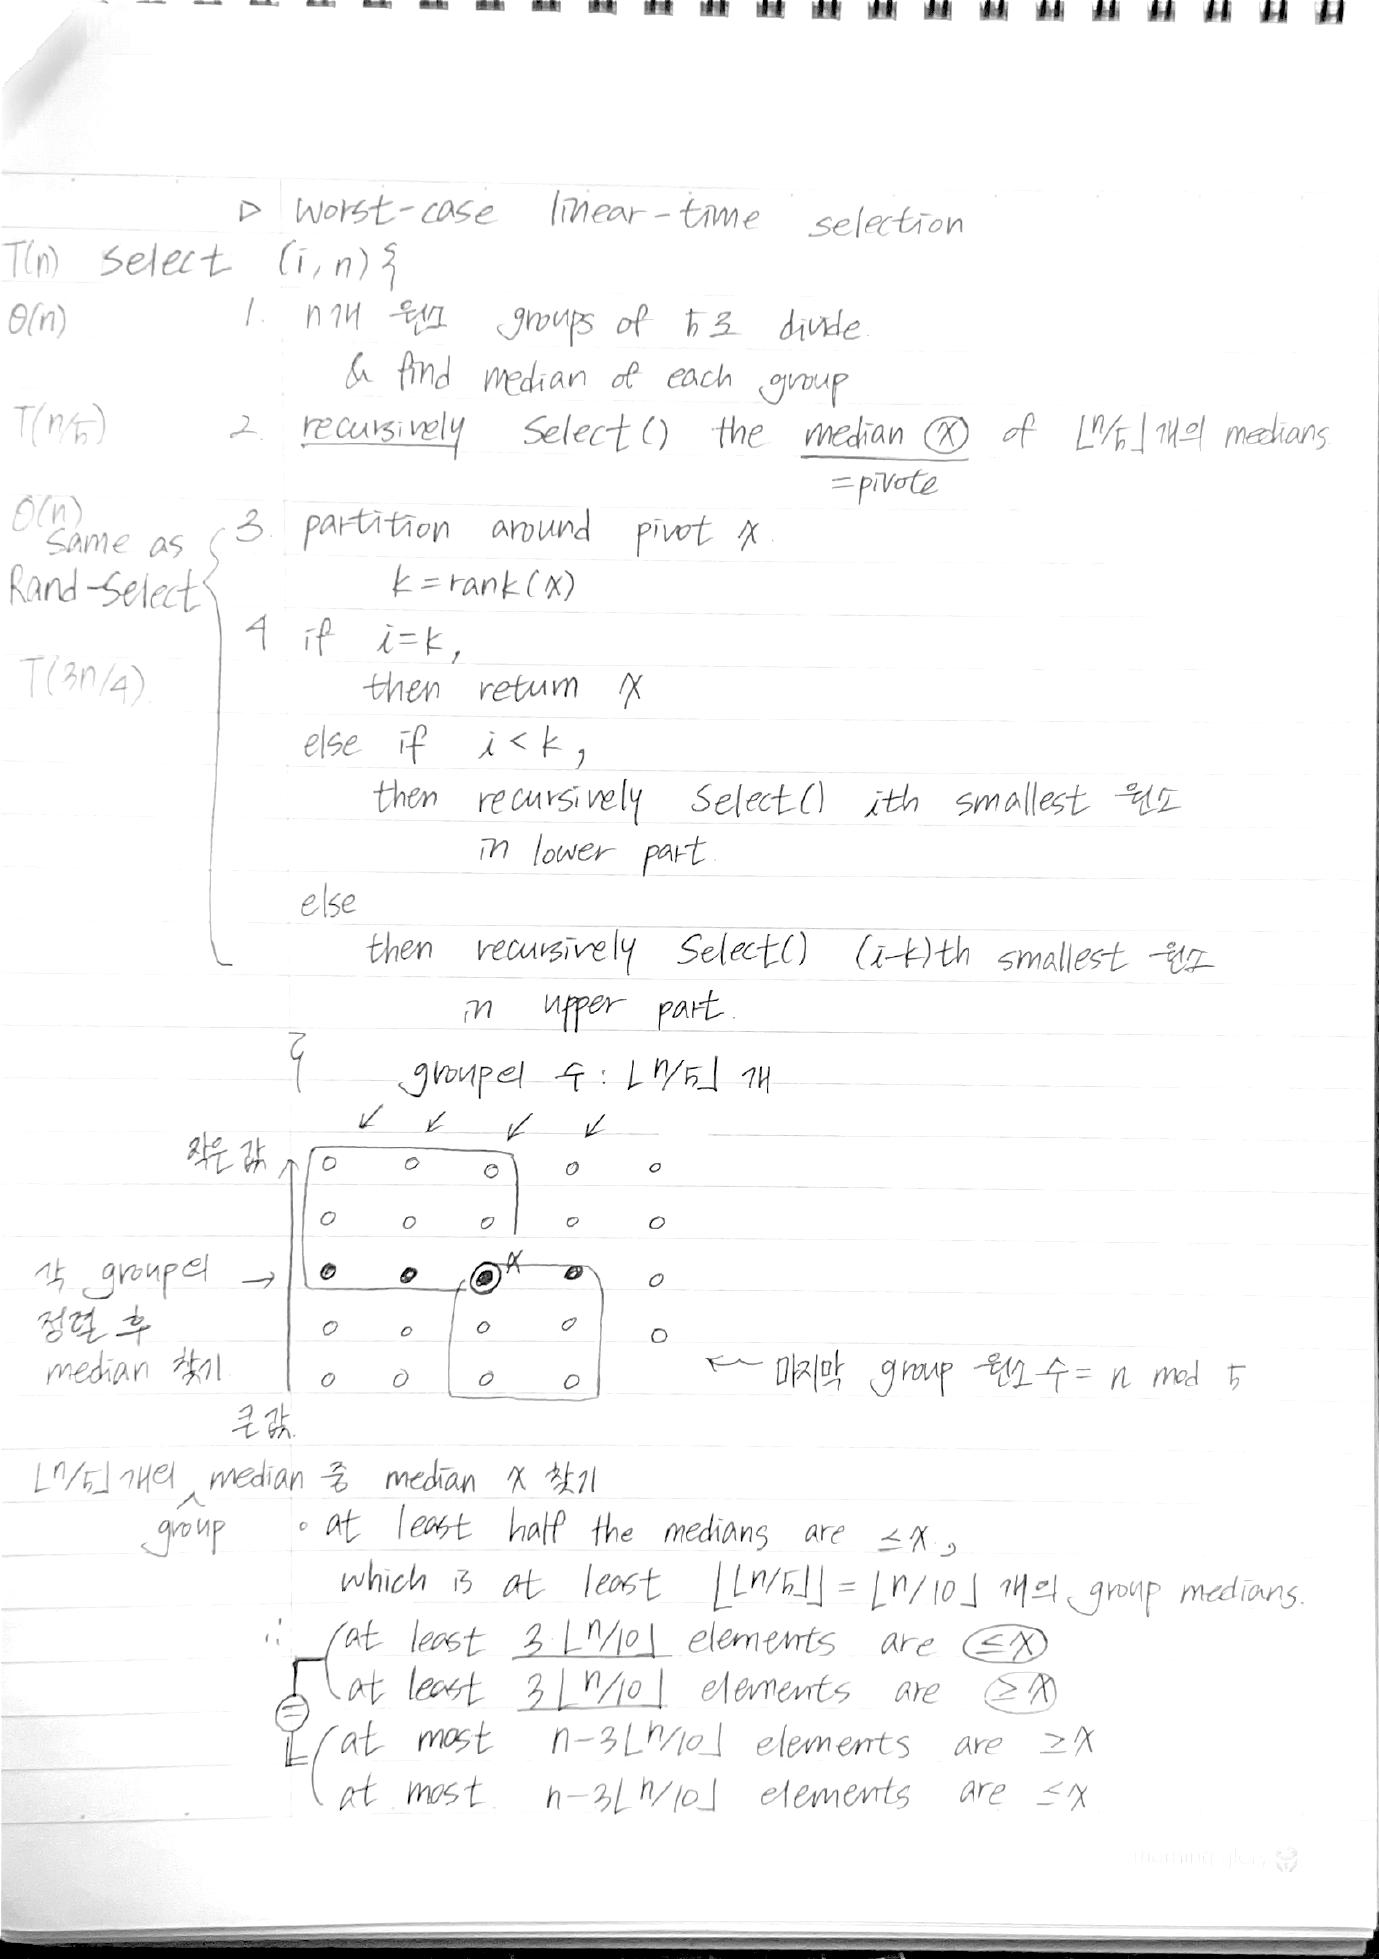 ▷ worst-case linear-time selection
T(n) Select (i, n) {
θ(n) 1. n개 원소 groups of 5로 divide.
& find median of each group
T(n/5) 2. recursively Select() the median ⓧ of ⌊n/5⌋개의 medians
=pivote
θ(n) 3. partition around pivot x.
Same as
k = rank(x)
Rand-Select
4 if i=k,
T(3n/4) then return x
else if i<k,
then recursively Select() ith smallest 원소
in lower part.
else
then recursively Select() (i-k)th smallest 원소
in upper part.
}
group의 수 : ⌊n/5⌋ 개
↙ ↙ ↙ ↙
작은 값
x
각 group의 →
정렬 후
median 찾기
← 마지막 group 원소 수 = n mod 5
큰 값.
⌊n/5⌋개의 group median 중 median x 찾기
◦ at least half the medians are ≤x,
which is at least ⌊⌊n/5⌋⌋ = ⌊n/10⌋ 개의 group medians.
∴ at least 3⌊n/10⌋ elements are ≤x
at least 3⌊n/10⌋ elements are ≥x
=
at most n-3⌊n/10⌋ elements are ≥x
at most n-3⌊n/10⌋ elements are ≤x
morning glory